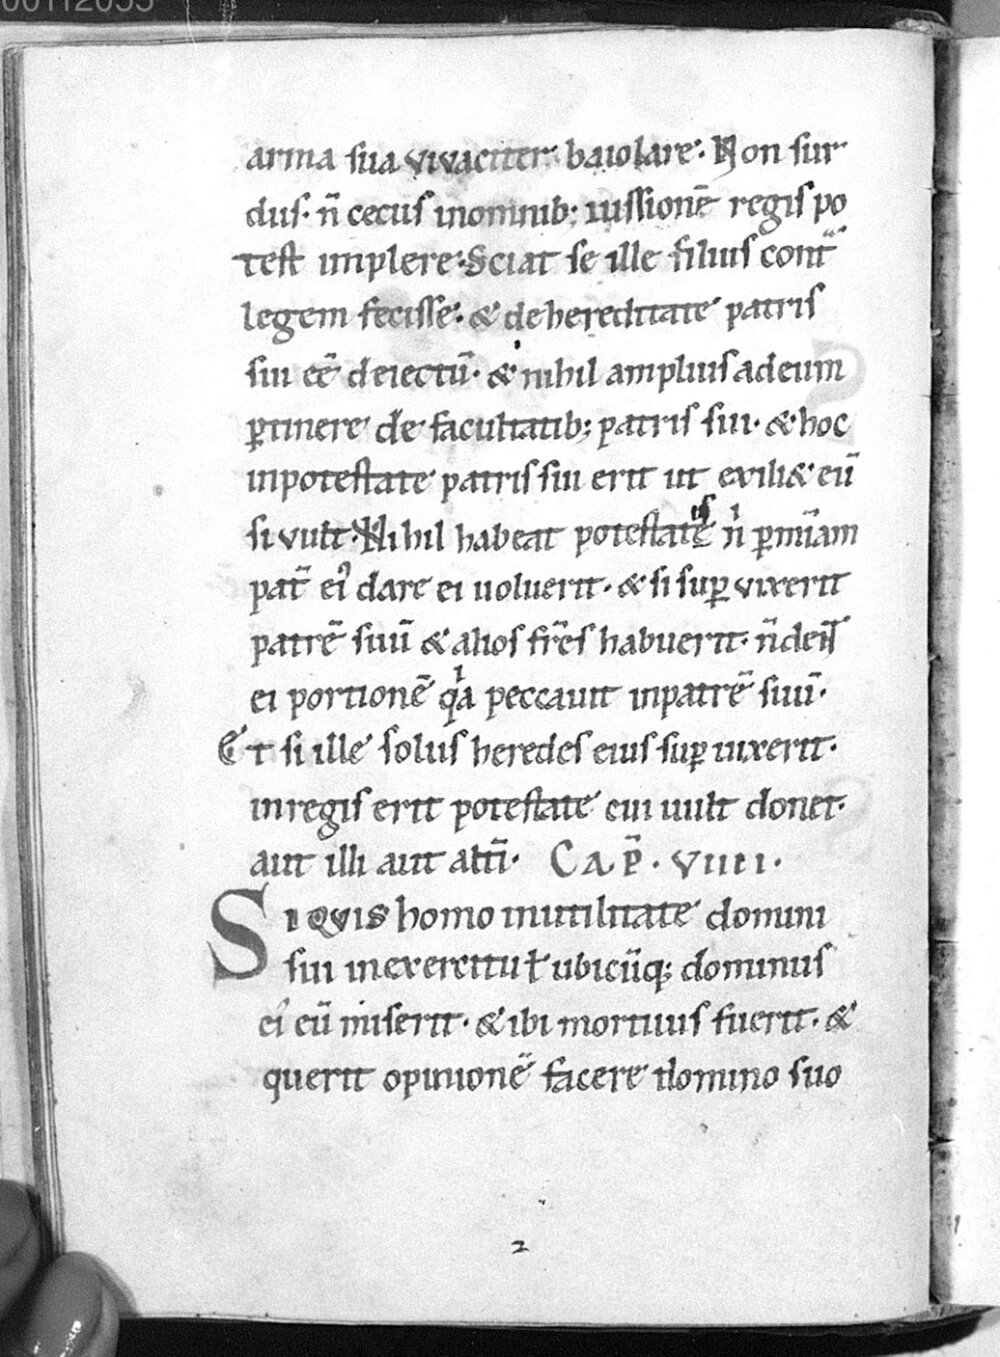 00112055
arma sua vivaciter baiolare. Non sur
dus. n̄ cecus inomnib; iussionē regis po
test implere. Sciat se ille filius cont̄
legem fecisse. & dehereditate patris
sui eē deiectū. & nihil amplius adeum
ꝑtinere de facultatib; patris sui. & hoc
inpotestate patris sui erit ut exili& eū
si vult. Nihil habeat potestatē n̄ ꝑ mīam
pat̄ ei' dare ei uoluerit. & si suꝑ vixerit
patrē suū & alios fr̄es habuerit. n̄ deis̄
ei portionē qͥa peccauit inpatrē suū.
Et si ille solus heredes eius suꝑ uixerit.
inregis erit potestate cui uult donet.
aut illi aut alt̄i. Cap̄. VIIII.
Si quis homo inutilitate domini
sui inexercitu ł ubicūq; dominus
ei' eū miserit. & ibi mortuus fuerit. &
querit opinionē facere domino suo
2